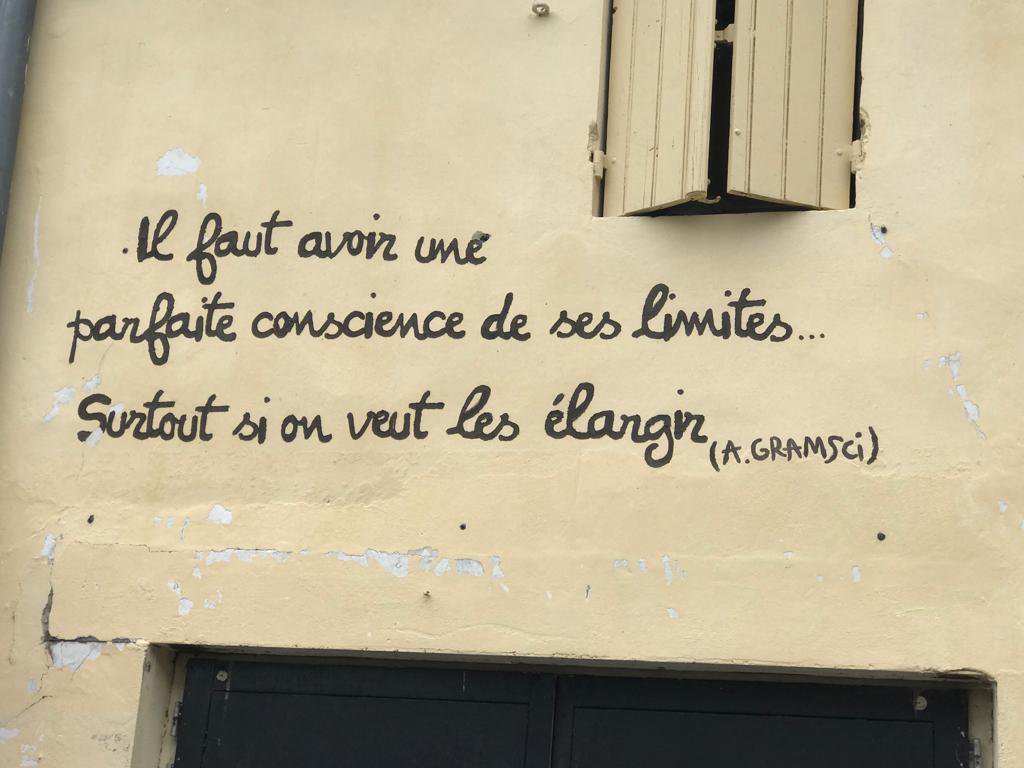 .Il faut avoir une
parfaite conscience de ses limites...
Surtout si on veut les élargir
(A.GRAMSCi)